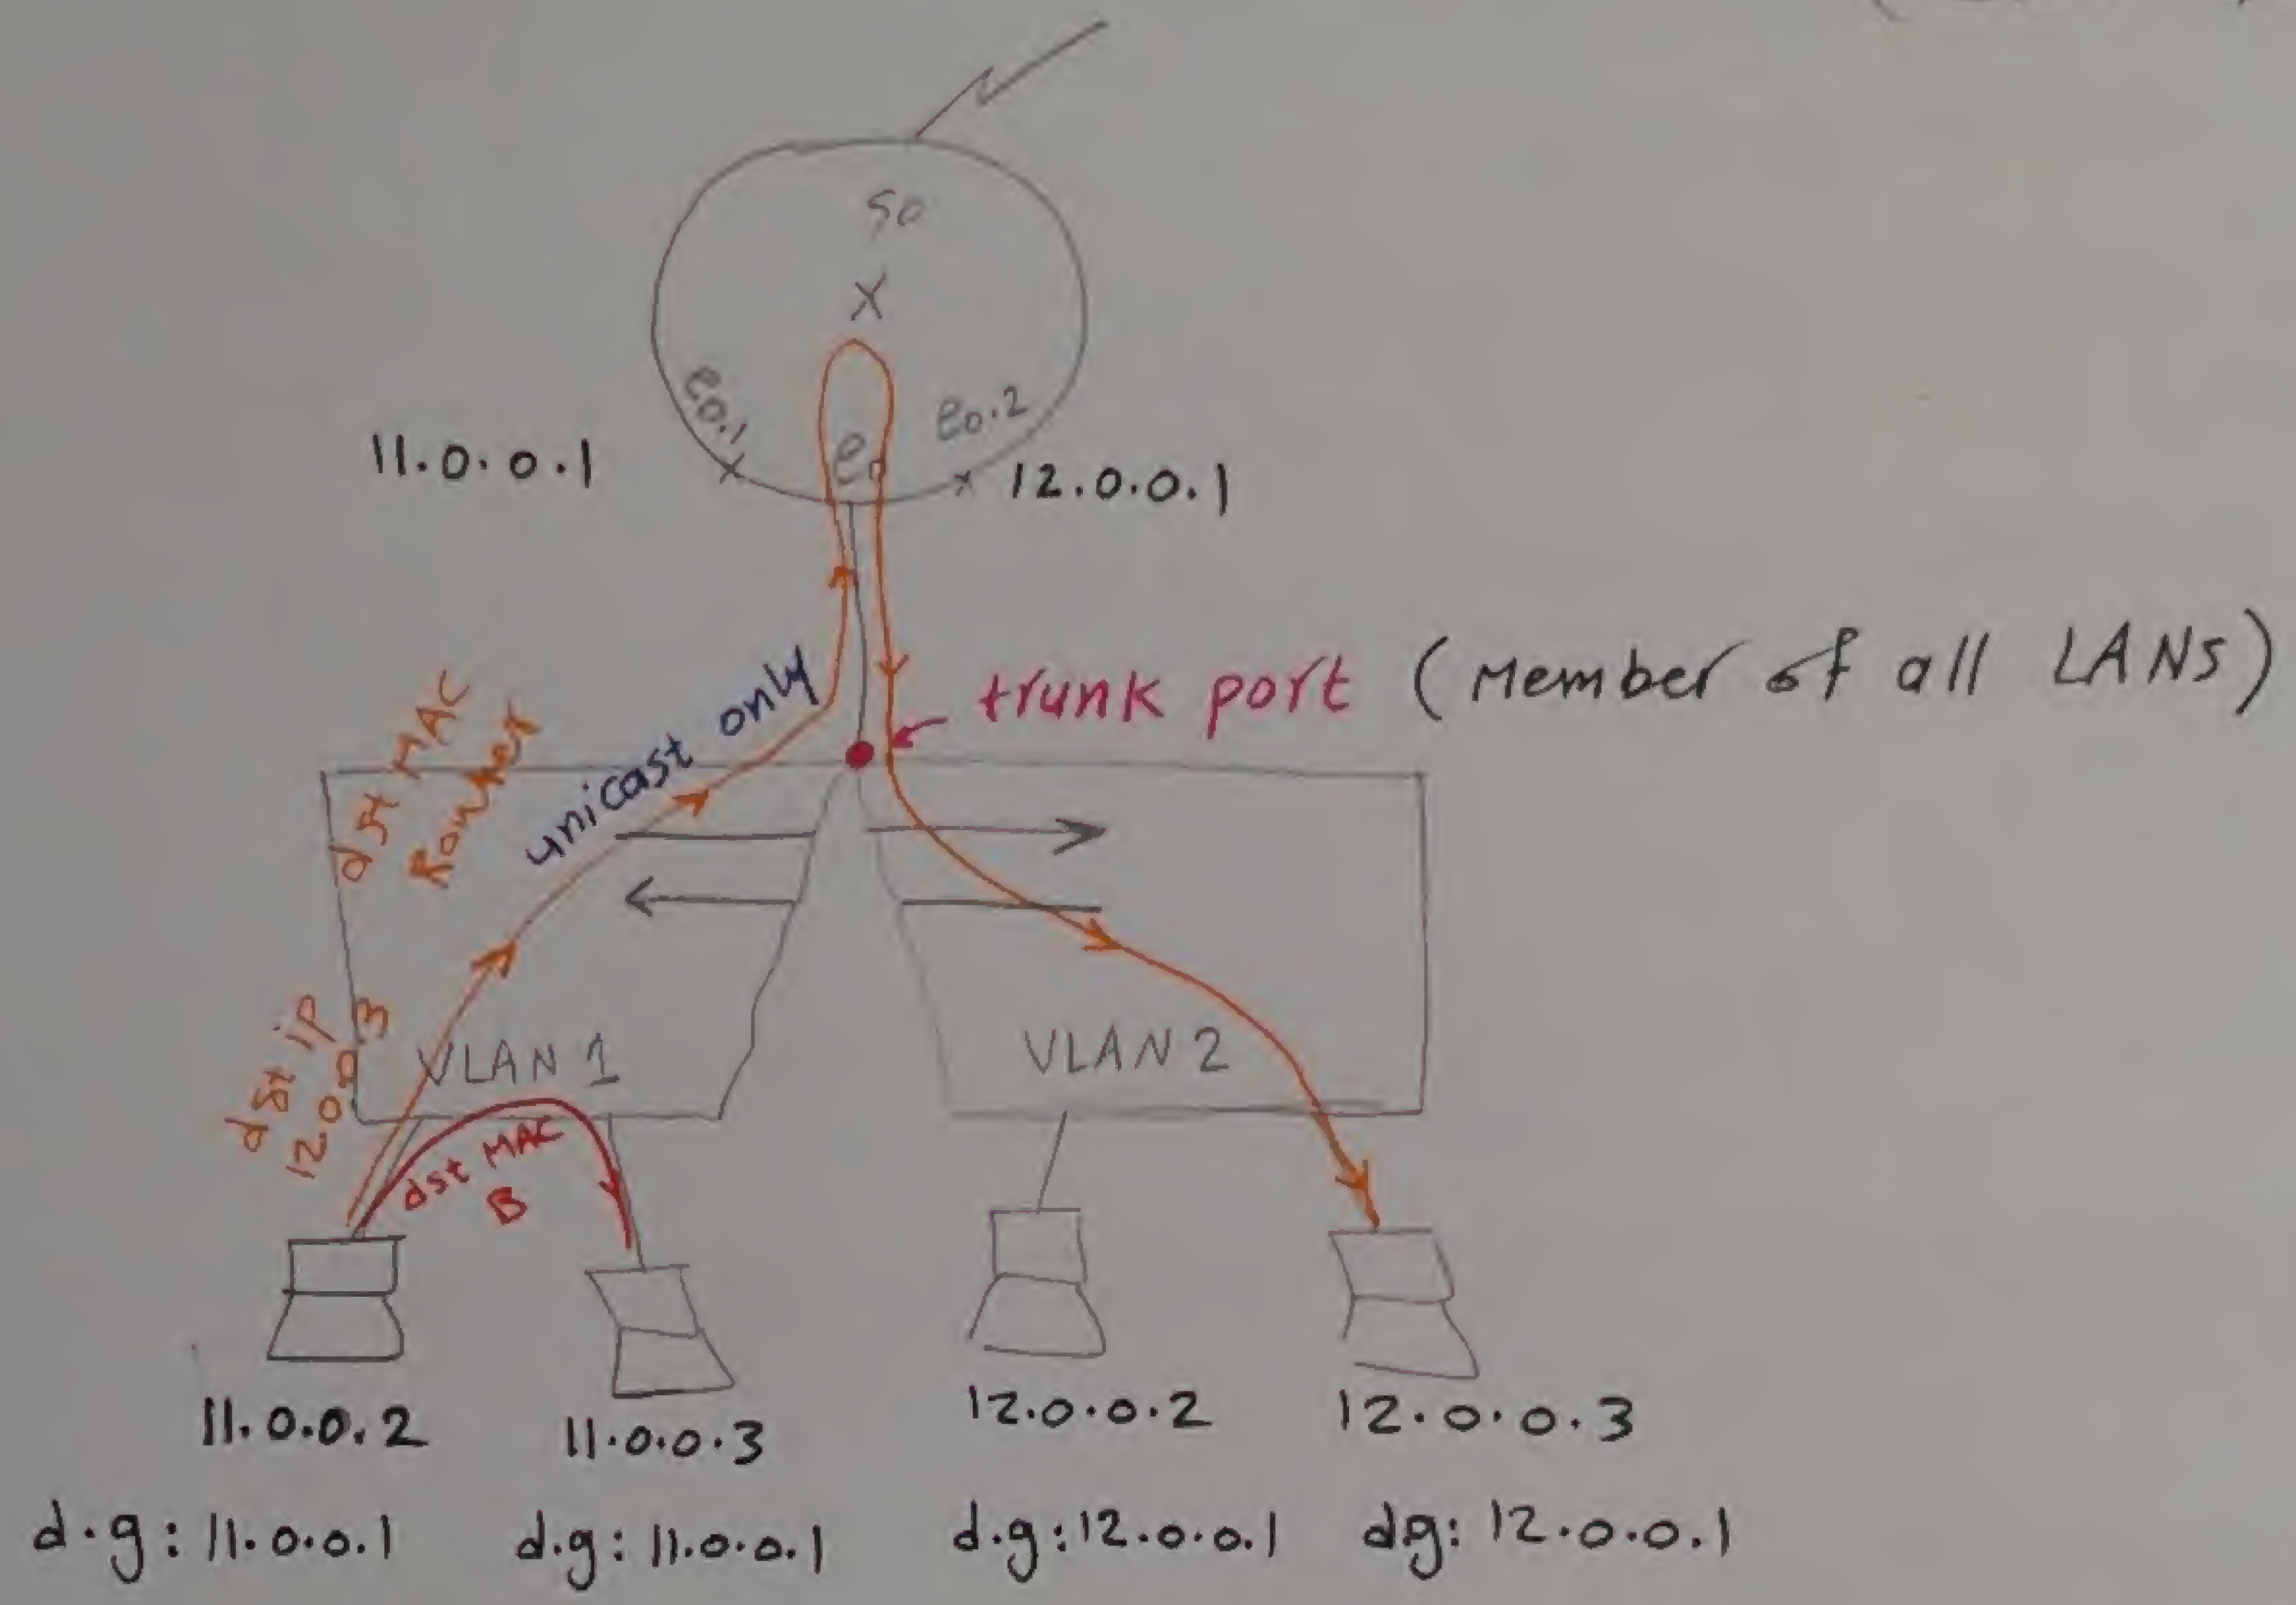 S0
X
e0.1
e0
e0.2
11.0.0.1
12.0.0.1
trunk port (Member of all LANs)
unicast only
dst MAC
Router
dst ip
12.0.0.3
VLAN 1
VLAN 2
dst MAC
B
11.0.0.2
11.0.0.3
12.0.0.2
12.0.0.3
d.g: 11.0.0.1
d.g: 11.0.0.1
d.g: 12.0.0.1
dg: 12.0.0.1